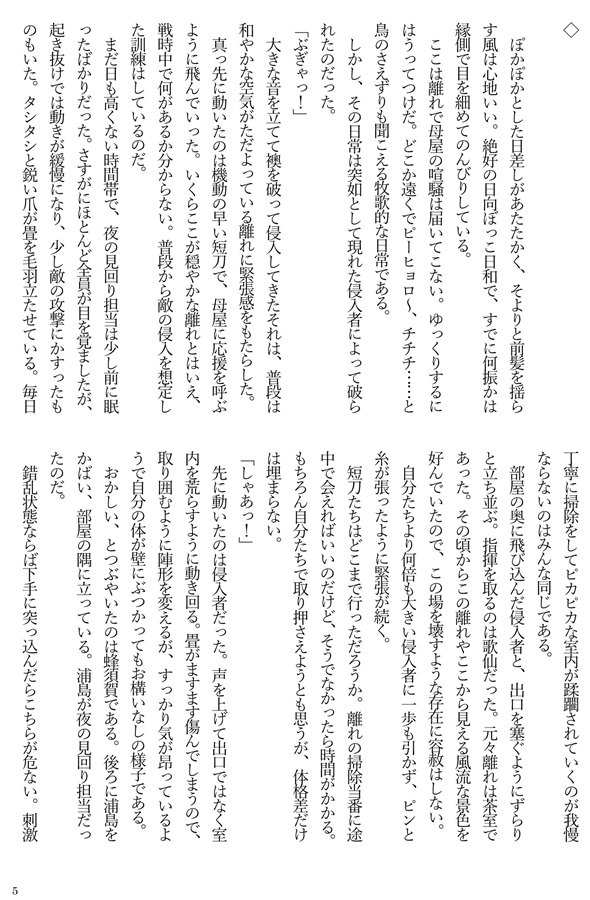 ◇
　ぽかぽかとした日差しがあたたかく、そよりと前髪を揺ら
す風は心地いい。絶好の日向ぼっこ日和で、すでに何振かは
縁側で目を細めてのんびりしている。
　ここは離れで母屋の喧騒は届いてこない。ゆっくりするに
はうってつけだ。どこか遠くでピーヒョロ～、チチチ……と
鳥のさえずりも聞こえる牧歌的な日常である。
　しかし、その日常は突如として現れた侵入者によって破ら
れたのだった。
「ぶぎゃっ！」
　大きな音を立てて襖を破って侵入してきたそれは、普段は
和やかな空気がただよっている離れに緊張感をもたらした。
　真っ先に動いたのは機動の早い短刀で、母屋に応援を呼ぶ
ように飛んでいった。いくらここが穏やかな離れとはいえ、
戦時中で何があるか分からない。普段から敵の侵入を想定し
た訓練はしているのだ。
　まだ日も高くない時間帯で、夜の見回り担当は少し前に眠
ったばかりだった。さすがにほとんど全員が目を覚ましたが、
起き抜けでは動きが緩慢になり、少し敵の攻撃にかすったも
のもいた。タシタシと鋭い爪が畳を毛羽立たせている。毎日
丁寧に掃除をしてピカピカな室内が蹂躙されていくのが我慢
ならないのはみんな同じである。
　部屋の奥に飛び込んだ侵入者と、出口を塞ぐようにずらり
と立ち並ぶ。指揮を取るのは歌仙だった。元々離れは茶室で
あった。その頃からこの離れやここから見える風流な景色を
好んでいたので、この場を壊すような存在に容赦はしない。
　自分たちより何倍も大きい侵入者に一歩も引かず、ピンと
糸が張ったように緊張が続く。
　短刀たちはどこまで行っただろうか。離れの掃除当番に途
中で会えればいいのだけど、そうでなかったら時間がかかる。
もちろん自分たちで取り押さえようとも思うが、体格差だけ
は埋まらない。
「しゃあっ！」
　先に動いたのは侵入者だった。声を上げて出口ではなく室
内を荒らすように動き回る。畳がますます傷んでしまうので、
取り囲むように陣形を変えるが、すっかり気が昂っているよ
うで自分の体が壁にぶつかってもお構いなしの様子である。
　おかしい、とつぶやいたのは蜂須賀である。後ろに浦島を
かばい、部屋の隅に立っている。浦島が夜の見回り担当だっ
たのだ。
　錯乱状態ならば下手に突っ込んだらこちらが危ない。刺激
5